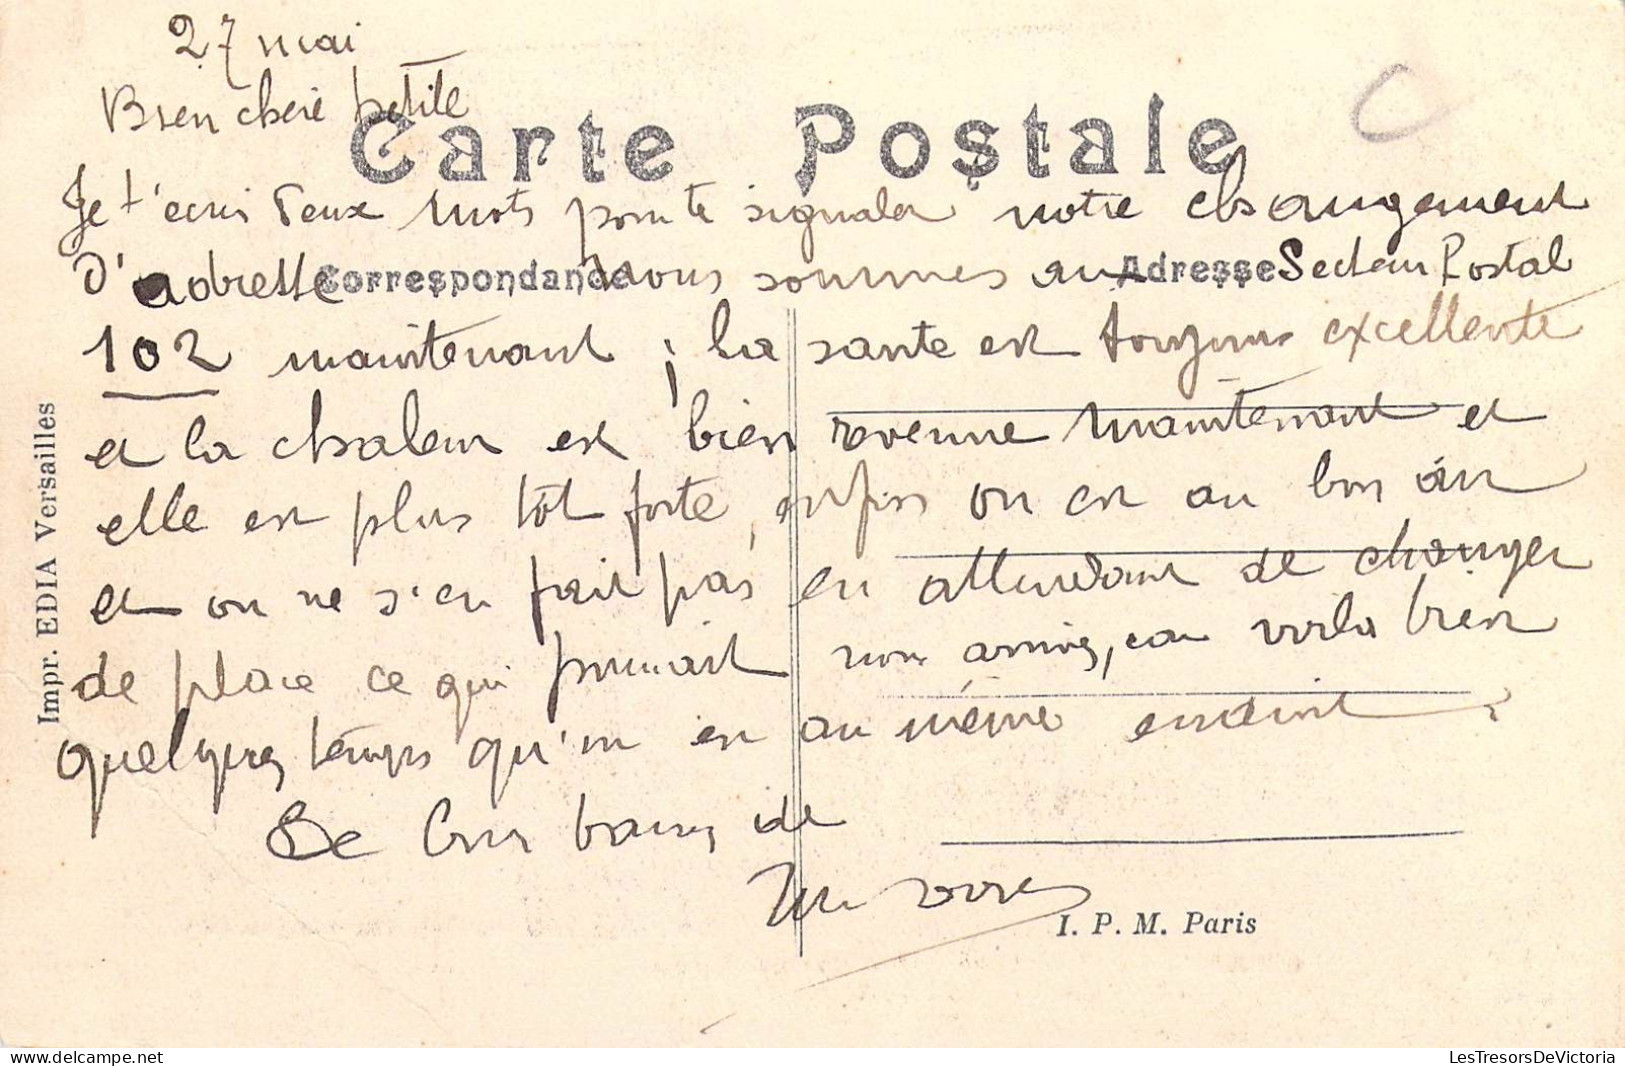 27 mai
Bien cherie petite
Carte Postale
Je t'ecris deux mots pour te signaler notre changement
d'adresse nous sommes au Secteur Postal
Correspondance
Adresse
102 maintenant ; la sante est toujours excellente
et la chaleur est bien revenue maintenant et
elle est plus tôt forte, enfin on est au bon air
et on ne s'en fait pas en attendant de changer
de place ce qui pourrait nous arriver, car voila bien
quelques temps qu'on est au même endroit.
De bons baisers de
I. P. M. Paris
Impr. EDIA Versailles
LesTresorsDeVictoria